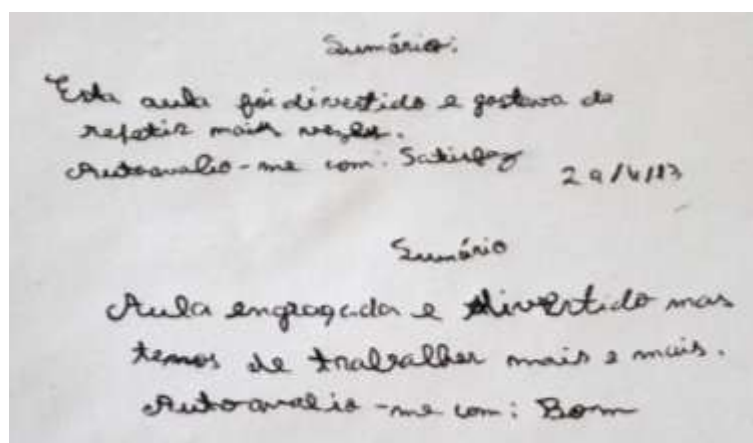 Sumário:
Esta aula foi divertido e gostava de
repetir mais vezes.
Autoavalio-me com: Satisfaz
29/4/13
Sumário
Aula engraçada e divertido mas
temos de trabalhar mais e mais.
Autoavalio-me com: Bom